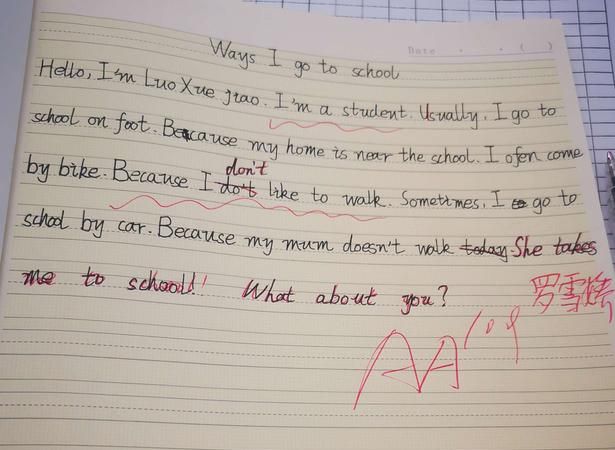 Date . . ( )
Ways I go to school
Hello, I'm Luo Xue jiao. I'm a student. Usually, I go to
school on foot. Because my home is near the school. I ofen come
don't
by bike. Because I do't like to walk. Sometimes, I go to
school by car. Because my mum doesn't walk today. She takes
me to school! What about you?
罗雪
AA